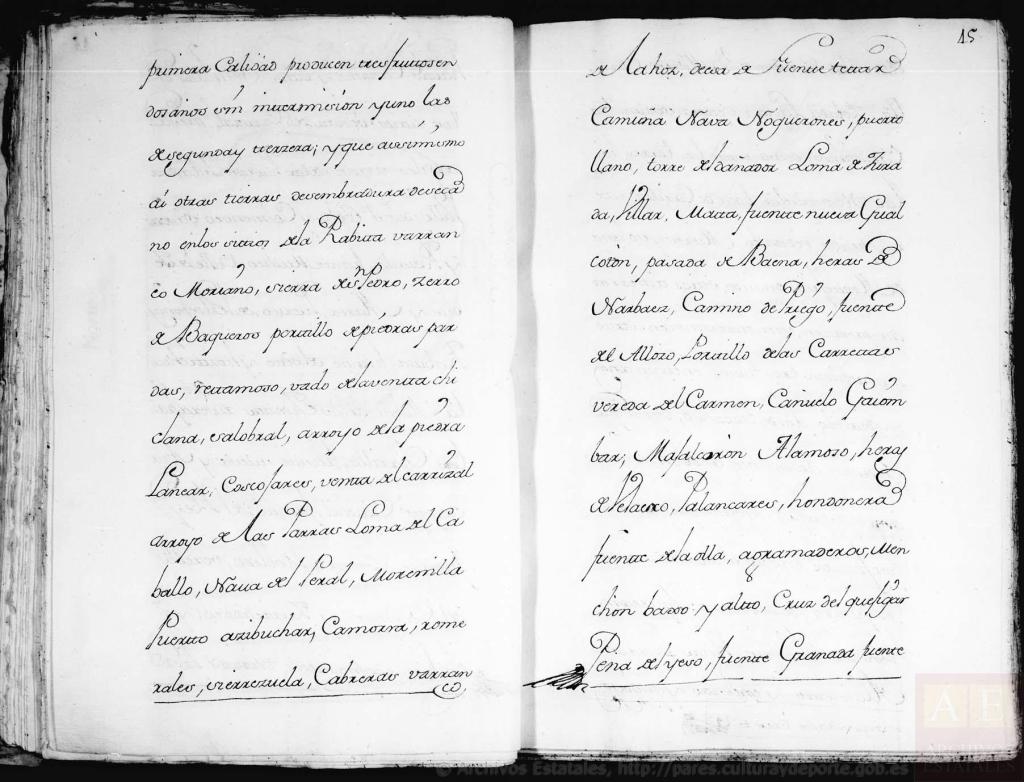 primera Calidad producen tres frutos en
dos años sin intermision y uno las
de segunda y terzera; y que assimismo
ai otras tierras de sembradura de seca
no en los sitios de la Rabita varran
co Moriano, sierra de Sn Pedro, Zerro
de Baqueros portillo de piedras par
das, rettamoso, vado de la venta chi
clana, salobral, arroyo de la piedra
Lancar, Coscojares, venta del carrizal
arroyo de las Parras Loma del Ca
ballo, Nava del Peral, Morenilla
Puertto azibuchar, Camorra, rome
rales, sierrezuela, Cabreras varran
co
15
de la hoz, desa de Fuente tetar
Camuña Nava Noguerones, puerto
llano, torre del dañador Loma de Zura
da, Villar, Matta, fuente nueva Gual
coton, pasada de Baena, heras de
Narbaez, Camino de Priego, fuente
del Allozo, Portillo de las Carrettas
vereda del Carmen, Cañuelo Gaiom
bar; Majalcoron Alamoso, heras
de Pelaero, Palancares, hondonera
fuente de la olla, agramaderos, Men
chon baxo y altto, Cruz del quejigar
Peña del yeso, fuente Granada fuente
© Archivos Estatales, http://pares.culturaydeporte.gob.es
A E